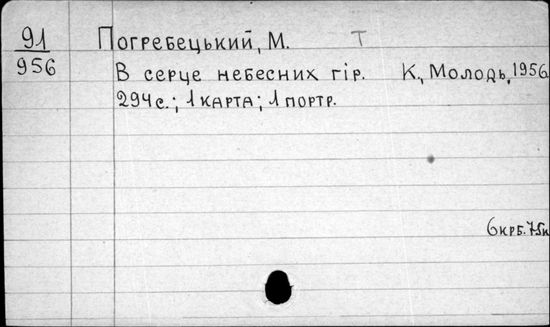 91 Погребецький, М. Т
956 В серце небесних гір. К., Молодь, 1956
294 с.; 1 карта; 1 портр.
6 крб. 75 к